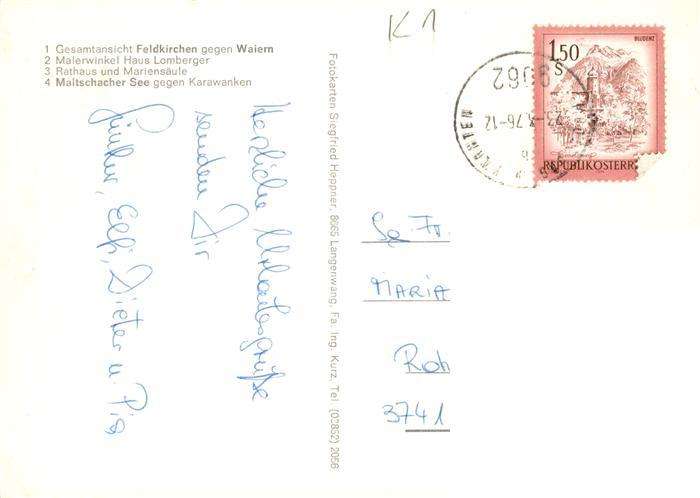 K1
1 Gesamtansicht Feldkirchen gegen Waiern
2 Malerwinkel Haus Lomberger
3 Rathaus und Mariensäule
4 Maltschacher See gegen Karawanken
Herzliche Urlaubsgrüße
senden Dir
Günter, Elfi, Dieter u.
Fotokarten Siegfried Heppner, 8665 Langenwang, Fa. Ing. Kurz, Tel. (03852) 2056
BLUDENZ
1,50
S
REPUBLIK ÖSTERR
9062
-3.76-12
Fr.
MARIA
3741